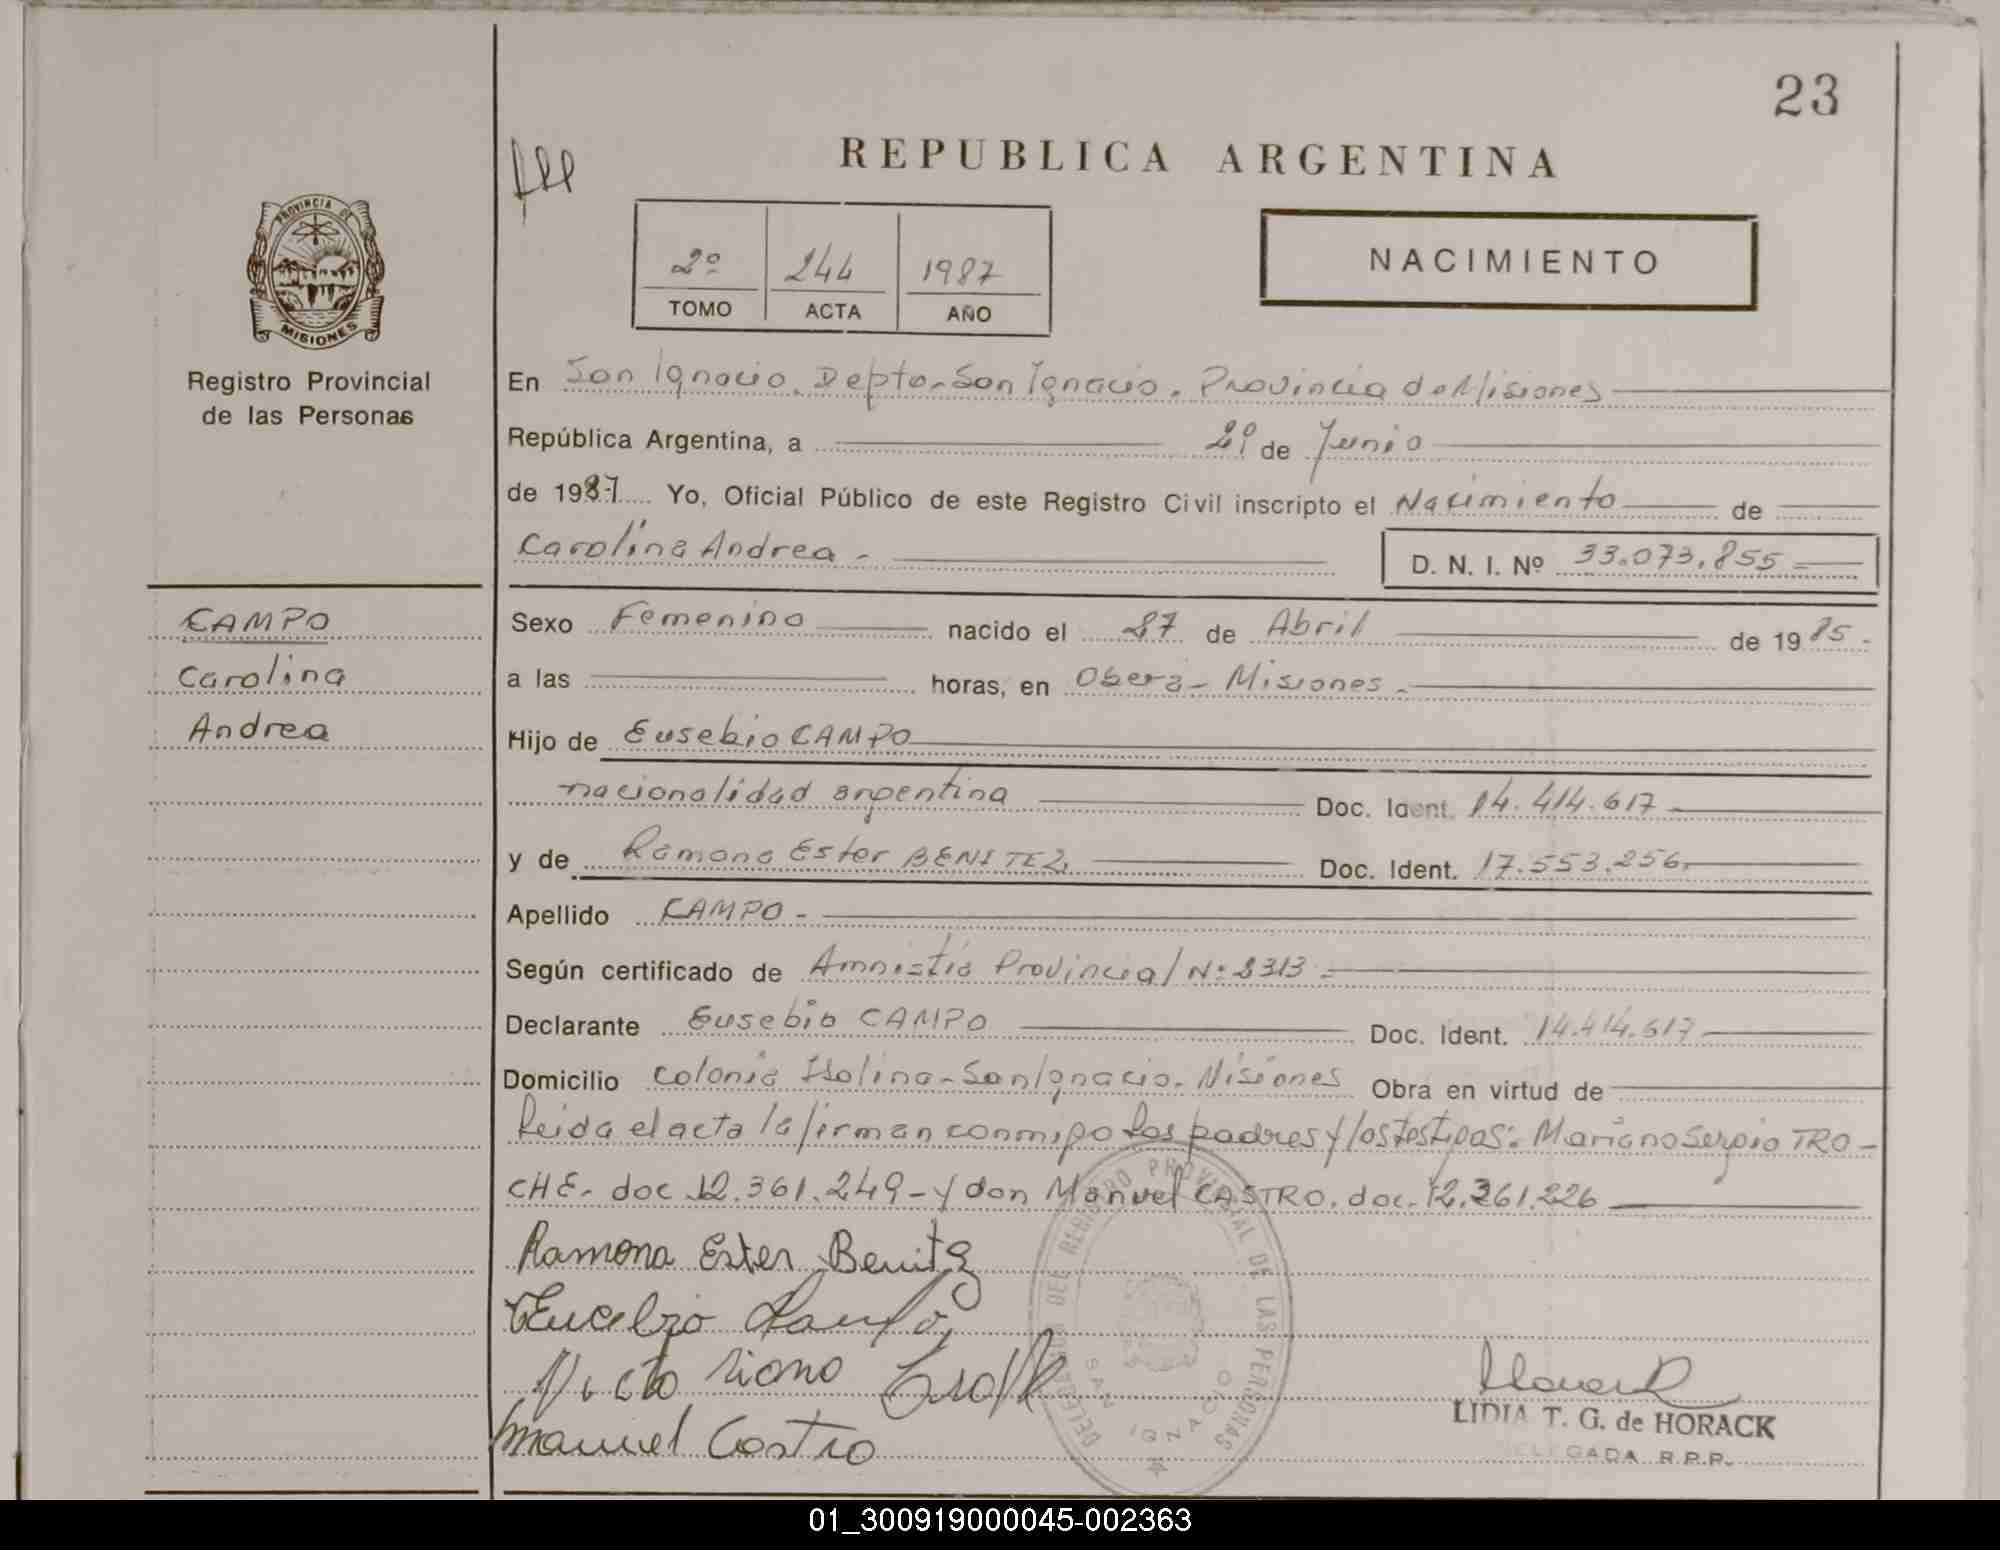 23
REPUBLICA ARGENTINA
PROVINCIA DE
MISIONES
Registro Provincial
de las Personas
2º 244 1987
TOMO ACTA AÑO
NACIMIENTO
En San Ignacio, Depto. San Ignacio. Provincia de Misiones
República Argentina, a 2º de Junio
de 1987 Yo, Oficial Público de este Registro Civil inscripto el Nacimiento de
Carolina Andrea - D. N. I. Nº 33.073.855
CAMPO
Carolina
Andrea
Sexo Femenino nacido el 27 de Abril de 1985.
a las horas, en Oberá - Misiones.
Hijo de Eusebio CAMPO
nacionalidad argentina Doc. Ident. 14.414.617
y de Ramona Ester BENITEZ, Doc. Ident. 17.553.256.
Apellido CAMPO -
Según certificado de Amnistía Provincial Nº 2313
Declarante Eusebio CAMPO Doc. Ident. 14.414.617
Domicilio Colonia - San Ignacio. Misiones Obra en virtud de
Leida el acta la firman conmigo los padres y los testigos: Mariano Sergio TRO-
CHE. doc 12.361.249 - y don Manuel CASTRO. doc. 12.361.226
Ramona Ester Benitez
Manuel Castro
DELEGACION DEL REGISTRO PROVINCIAL DE LAS PERSONAS
SAN IGNACIO
LIDIA T. G. de HORACK
DELEGADA R.P.P.
01_300919000045-002363